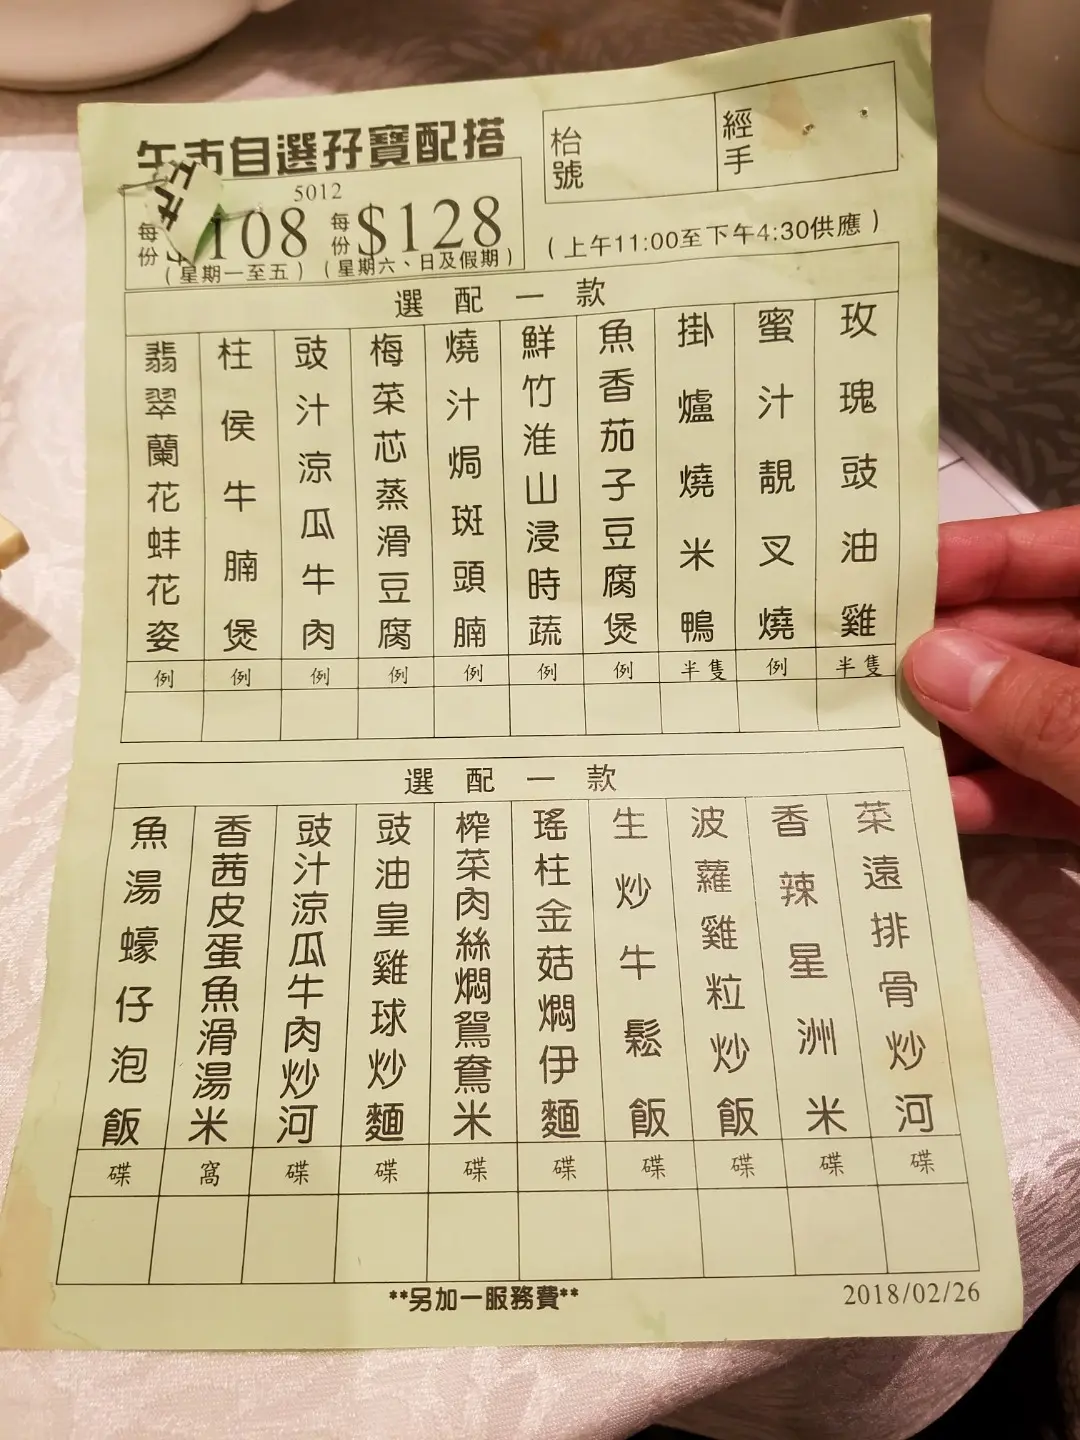 午市自選孖寶配搭
枱號
經手
5012
每份 108
每份 $128
(星期一至五)
(星期六、日及假期)
(上午11:00至下午4:30供應)
選配一款
玫瑰豉油雞
半隻
蜜汁靚叉燒
例
掛爐燒米鴨
半隻
魚香茄子豆腐煲
例
鮮竹淮山浸時蔬
例
燒汁焗斑頭腩
例
梅菜芯蒸滑豆腐
例
豉汁涼瓜牛肉
例
柱侯牛腩煲
例
翡翠蘭花蚌花姿
例
選配一款
菜遠排骨炒河
碟
香辣星洲米
碟
波蘿雞粒炒飯
碟
生炒牛鬆飯
碟
瑤柱金菇燜伊麵
碟
榨菜肉絲燜鴛鴦米
碟
豉油皇雞球炒麵
碟
豉汁涼瓜牛肉炒河
碟
香茜皮蛋魚滑湯米
窩
魚湯蠔仔泡飯
碟
**另加一服務費**
2018/02/26